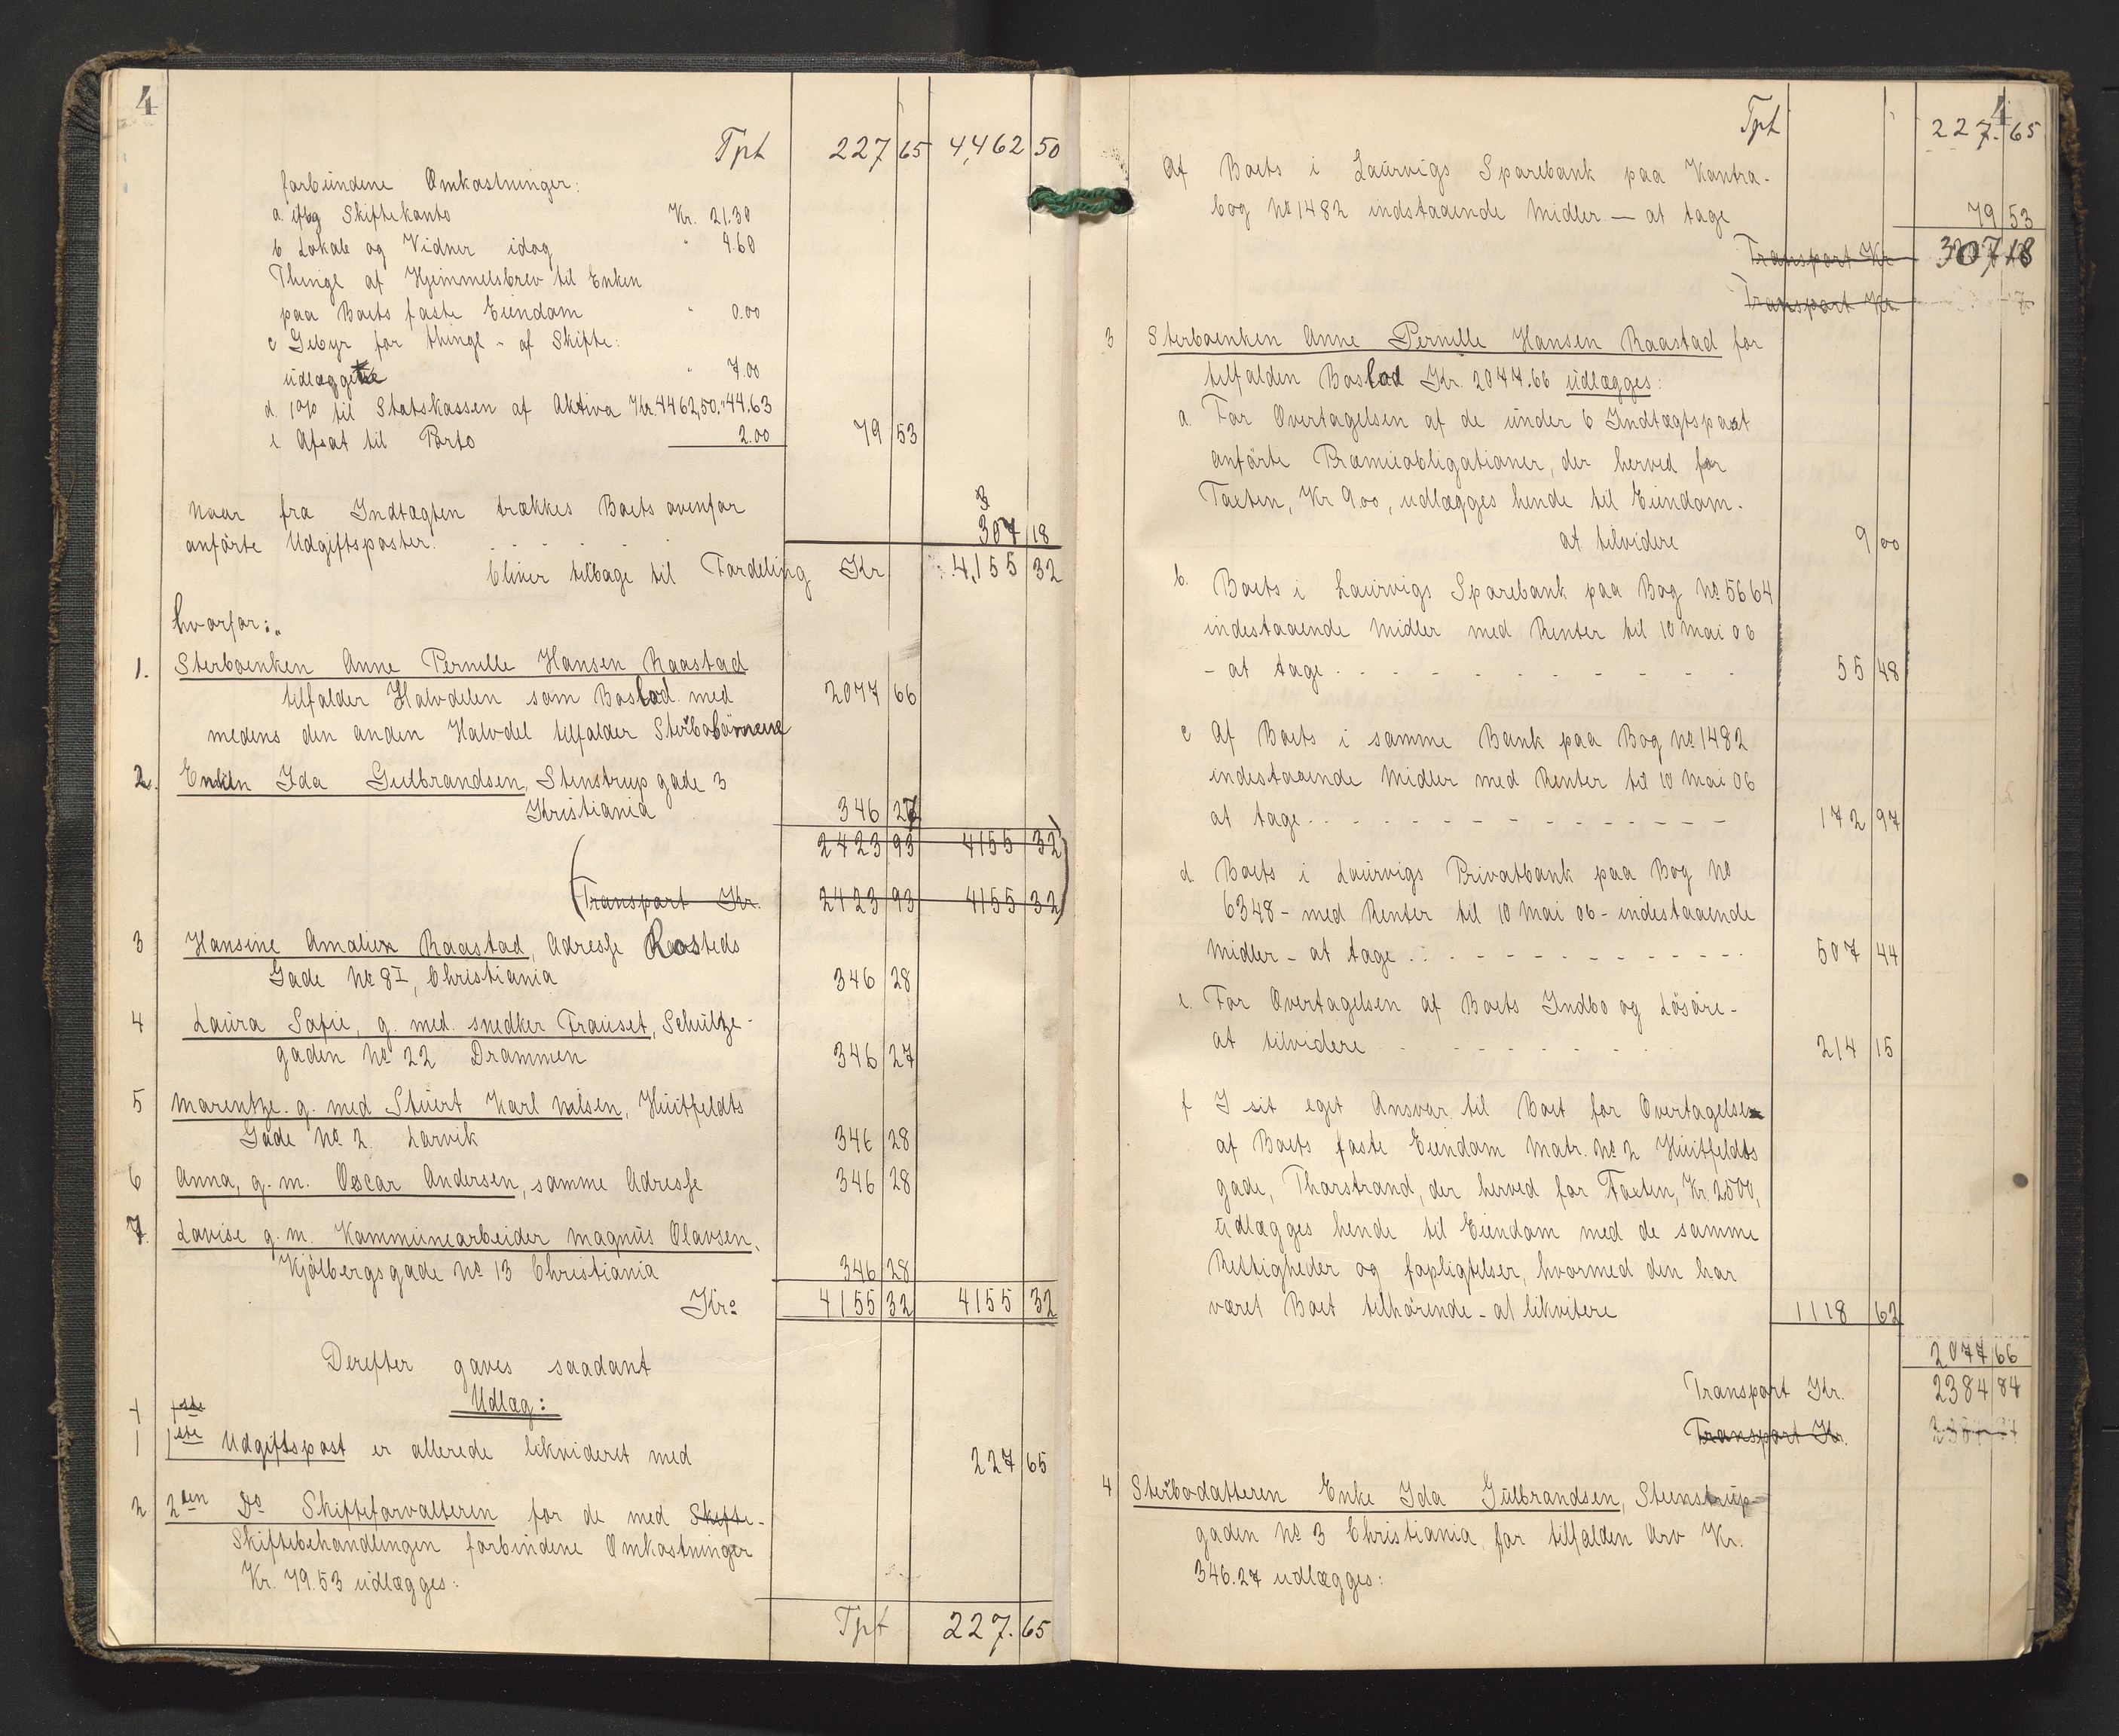 4
Tpt 227 65 4,462 50
forbundne Omkostninger:
a. iflg Skiftekonto Kr. 21.30
b Lokale og Vidner idag " 4.60
Thingl af Hjemmelsbrev til Enken
paa Boets faste Eiendom " 0.00
c Gebyr for thingl - af Skifte:
udlæggene " 7.00
d. 1% til Statskassen af Aktiva Kr. 4462,50. " 44.63
e Afsat til Porto 2.00 79 53
Naar fra Indtægten trækkes Boets ovenfor
anførte Udgiftsposter. 307 18
bliver tilbage til Fordeling Kr 4,155 32
hvorfor:
1. Sterboenken Anne Pernille Hansen Raastad
tilfalder Halvdelen som Boslod med 2077 66
medens den anden Halvdel tilfalder Sterbobørnene
2. Enken Ida Gulbrandsen, Stenstrup gade 3
Kristiania 346 27
2423 93 4155 32
Transport Kr. 2423 93 4155 32
3 Hansine Amalie Raastad, Adresse Rosteds
Gade No 8 I, Christiania 346 28
4 Laura Sofie, g. med. snedker Frauset, Schultze-
gaden No 22 Drammen 346 27
5 Marentze. g. med Stuert Karl Nilsen, Huitfeldts
Gade No. 2 Larvik 346 28
6 Anna, g. m. Oscar Andersen, samme Adresse 346 28
7. Lovise g. m. Kommunearbeider Magnus Olavsen,
Kjølbergsgade No 13 Christiania 346 28
Kr. 4155 32 4155 32
Derefter gaves saadant
Udlæg:
1 1ste
1 1ste Udgiftspost er allerede likvideret med 227 65
2 2den Do Skifteforvalteren for de med Skifte-
Skiftebehandlingen forbundne Omkostninger
Kr. 79.53 udlægges:
Tpt 227. 65
4
Tpt 227. 65
Af Boets i Laurvigs Sparebank paa Kontra-
bog No 1482 indstaaende Midler - at tage 79 53
Transport Kr 307 18
Transport Kr.
3 Sterboenken Anne Pernille Hansen Raastad for
tilfalden Boslod Kr. 2077.66 udlægges:
a. For Overtagelsen af de under 6 Indtægtspost
anførte Præmieobligationer, der herved for
Taxten, Kr 900, udlægges hende til Eiendom.
at tilvidere 9 00
b. Boets i Laurvigs Sparebank paa Bog No 5664
indestaaende Midler med Renter til 10 Mai 06
- at tage 55 48
c Af Boets i samme Bank paa Bog No 1482
indestaaende Midler med Renter til 10 Mai 06
at tage 172 97
d. Boets i Laurvigs Privatbank paa Bog No
6348 - med Renter til 10 Mai 06 - indestaaende
Midler - at tage 507 44
e. For Overtagelsen af Boets Indbo og Løsøre -
at tilvidere 214 15
f I sit eget Ansvar til Boet for Overtagelsen
af Boets faste Eiendom Matr. No 2 Huitfeldts
gade, Thorstrand, der herved for Taxten, Kr. 2500,
udlægges hende til Eiendom med de samme
Rettigheder og fopligtelser, hvormed den har
været Boet tilhørende - at likvitere 1118 62
2077 66
Transport Kr. 2384 84
Transport Kr. 2384
4 Sterbodatteren Enke Ida Gulbrandsen, Steenstrup-
gaden No 3 Christiania for tilfalden Arv Kr.
346.27 udlægges: